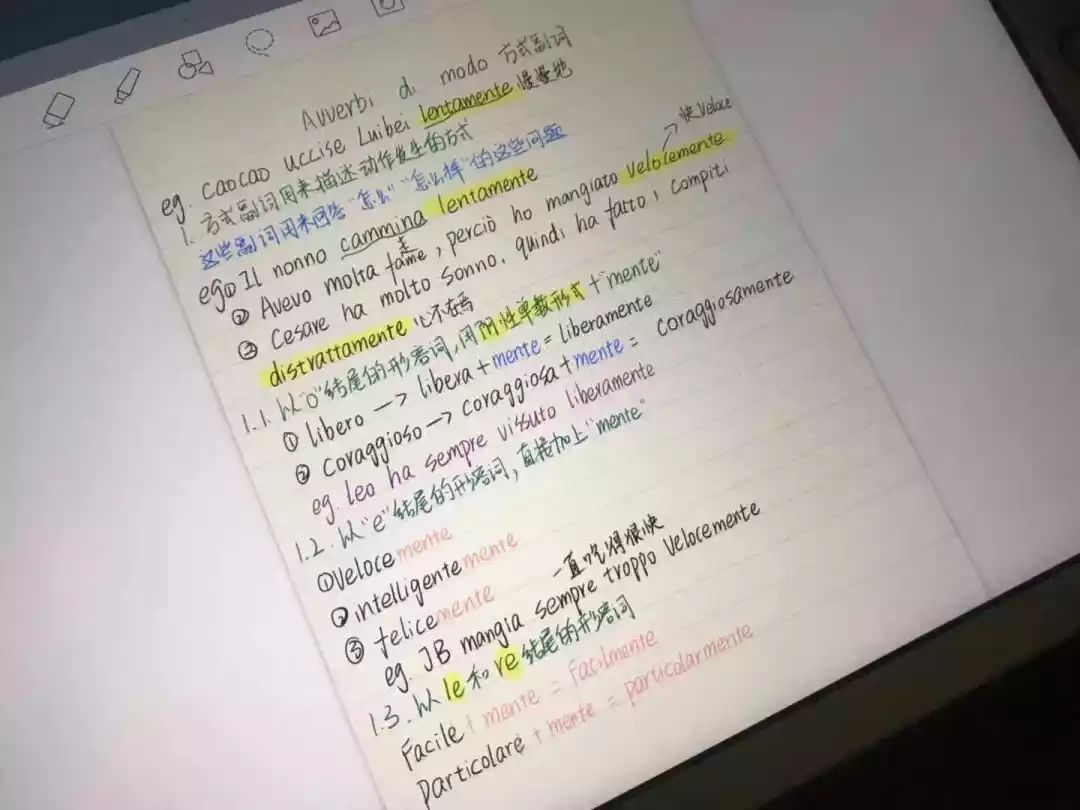 Avverbi di modo 方式副词
eg. caocao uccise Luibei lentamente 慢慢地
1. 方式副词用来描述动作发生的方式
这些副词用来回答"怎么""怎么样"的这些问题
快 veloce
eg① Il nonno cammina lentamente
走
② Avevo molta fame, perciò ho mangiato velocemente
③ Cesare ha molto sonno. quindi ha fatto i compiti
distrattamente 心不在焉
1.1. 以"o"结尾的形容词,用阴性单数形式+"mente"
① libero → libera + mente = liberamente
② coraggioso → coraggiosa + mente = coraggiosamente
eg. leo ha sempre vissuto liberamente
1.2. 以"e"结尾的形容词,直接加上"mente"
① velocemente
② intelligentemente
③ felicemente
一直吃得很快
eg. JB mangia sempre troppo velocemente
1.3. 以 le 和 re 结尾的形容词
Facile + mente = facilmente
Particolare + mente = particolarmente